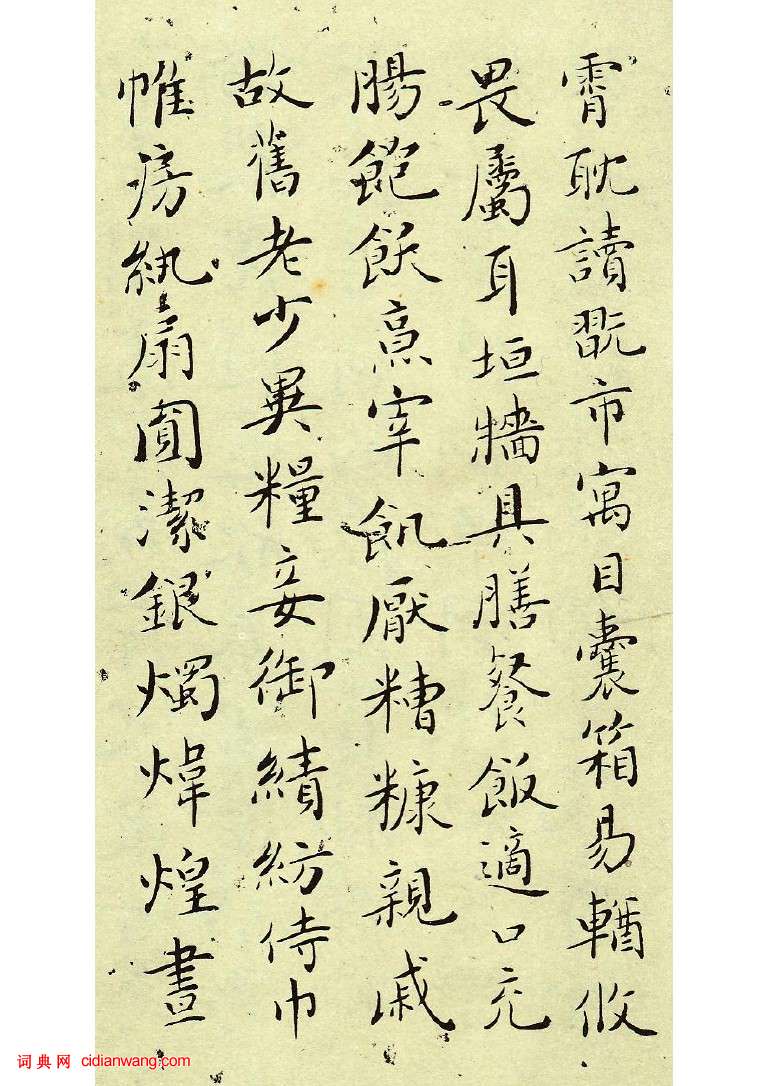 霄耽讀翫市寓目囊箱易輶攸
畏屬耳垣牆具膳飡飯適口充
腸飽飫烹宰飢厭糟糠親戚
故舊老少異糧妾御績紡侍巾
帷房紈扇圓潔銀燭煒煌晝
词典网 cidianwang.com